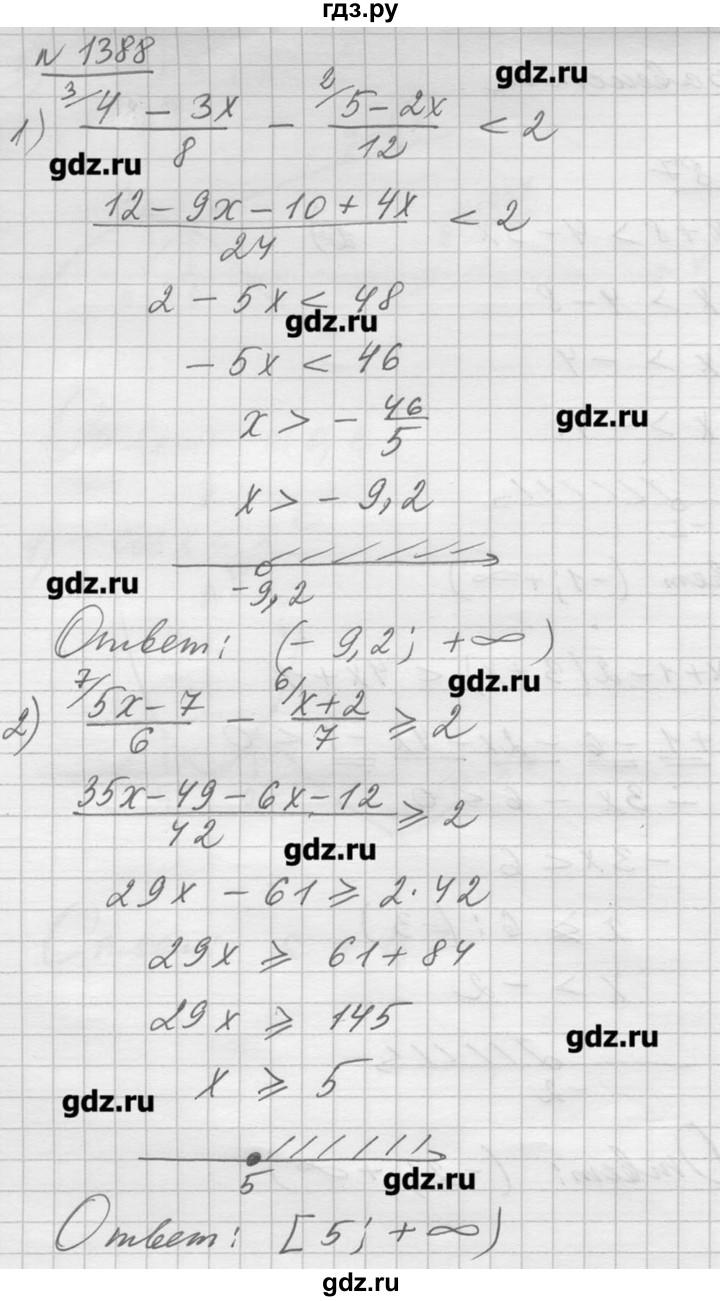 гдз.ру
№ 1388
gdz.ru
1) ³/ 4 - 3x / 8 - ²/ 5 - 2x / 12 < 2
gdz.ru
12 - 9x - 10 + 4x / 24 < 2
2 - 5x < 48
gdz.ru
- 5x < 46
x > - 46/5
gdz.ru
x > - 9,2
gdz.ru
-9,2
Ответ: (- 9,2; +∞)
gdz.ru
2) ⁷/ 5x - 7 / 6 - ⁶/ x + 2 / 7 ⩾ 2
35x - 49 - 6x - 12 / 42 ⩾ 2
gdz.ru
29x - 61 ⩾ 2·42
29x ⩾ 61 + 84
29x ⩾ 145
gdz.ru
x ⩾ 5
gdz.ru
5
gdz.ru
Ответ: [5; +∞)
gdz.ru